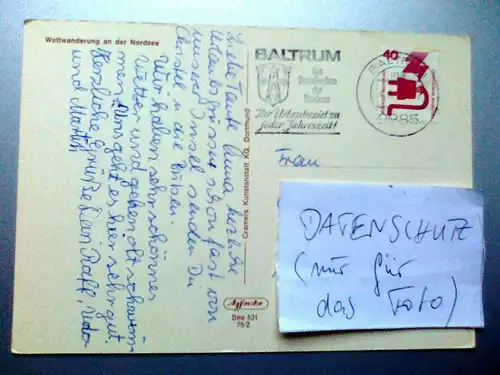 Wattwanderung an der Nordsee
Liebe Tante Anna, herzliche
Urlaubsgrüsse schon fast von
unserer Insel senden Dir
Christen u. die Buben.
Wir haben sehr schönes
Wetter und gehen oft schwim-
men. Uns geht es hier sehr gut.
Herzliche Grüße Dein Ralf,
und Martin
Cramers Kunstanstalt KG, Dortmund
See 531
75/2
BALTRUM
das
Dornröschen
der
Nordsee
Ihr Urlaubsziel zu
jeder Jahreszeit!
BALTRUM
2985
40
Frau
DATENSCHUTZ
(nur für
das Foto)